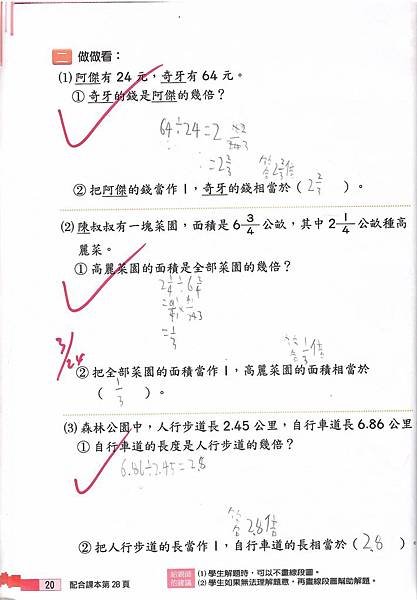 二 做做看：
(1) 阿傑有 24 元，奇牙有 64 元。
① 奇牙的錢是阿傑的幾倍？
64÷24=2
=2 2/3 答 2 2/3 倍
② 把阿傑的錢當作 1，奇牙的錢相當於（ 2 2/3 ）。
(2) 陳叔叔有一塊菜園，面積是 6 3/4 公畝，其中 2 1/4 公畝種高
麗菜。
① 高麗菜園的面積是全部菜園的幾倍？
2 1/4÷6 3/4
=1/3
答 1/3 倍
3/24
② 把全部菜園的面積當作 1，高麗菜園的面積相當於
（ 1/3 ）。
(3) 森林公園中，人行步道長 2.45 公里，自行車道長 6.86 公里
① 自行車道的長度是人行步道的幾倍？
6.86÷2.45=2.8
答 2.8 倍
② 把人行步道的長當作 1，自行車道的長相當於（ 2.8 ）
20 配合課本第 28 頁
給親師的建議
(1) 學生解題時，可以不畫線段圖。
(2) 學生如果無法理解題意，再畫線段圖幫助解題。